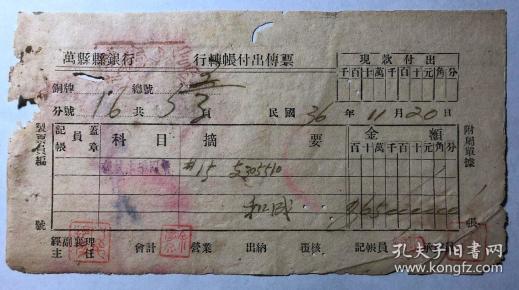 萬縣縣銀行 行轉帳付出傳票 現款付出
千百十萬千百十元角分
銅牌 總號
分號 16 共 民國 36 年 11 月 20 日
製票員編 號
記帳員蓋章 科目 摘要 金額
百十萬千百十元角分
附屬單據 張
#15 支305510
和成
經副襄理 主任 會計 營業 出納 覆核 記帳員
孔夫子旧书网